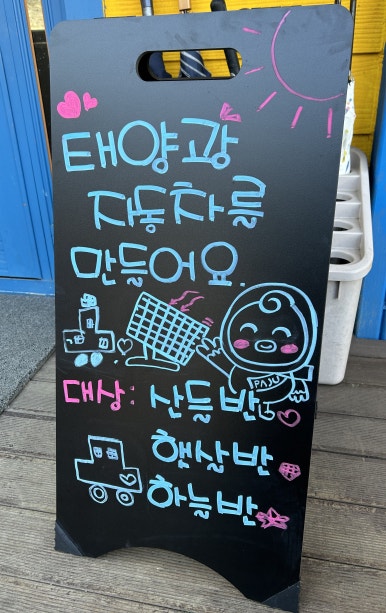 태양광
자동차를
만들어요.
PAJU
대상: 산들반
햇살반
하늘반